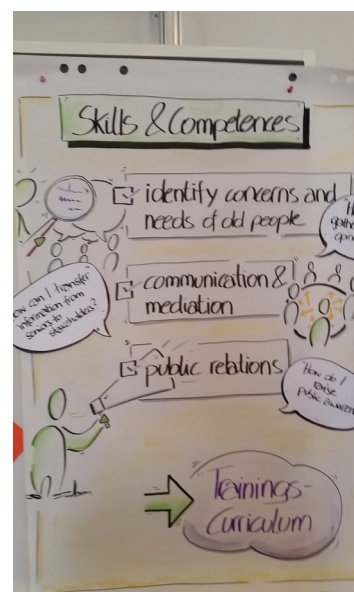 Skills & Competences
identify concerns and
needs of old people
gathe
communication &
mediation
ow can I transfer
information from
seniors to
stakeholders?
public relations
How do I
raise
public awaren
Trainings-
Curriculum